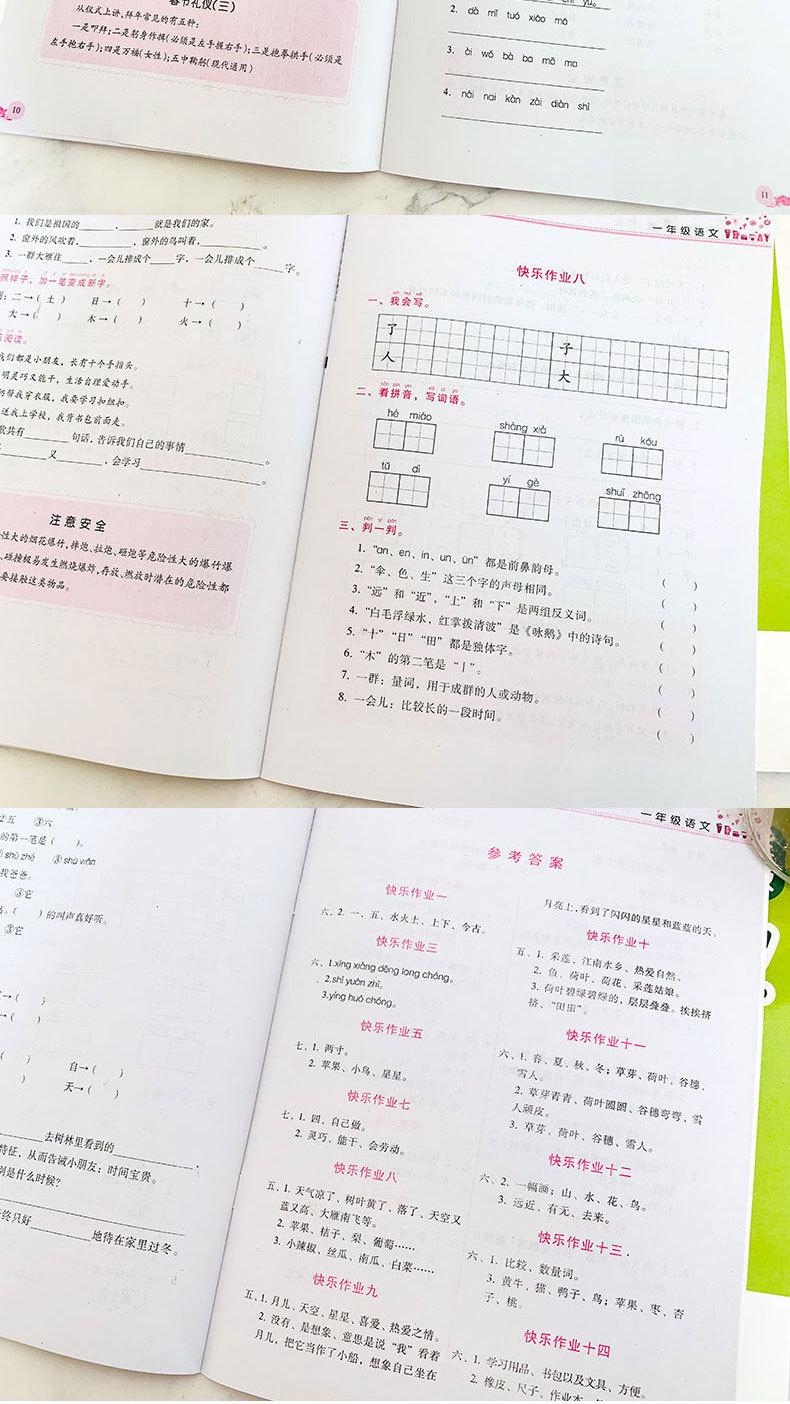 春节礼仪(三)
从仪式上讲,拜年常见的有五种:
一是叩拜;二是躬身作揖(必须是左手握右手);三是抱拳拱手(必须是
左手抱右手);四是万福(女性);五中鞠躬(现代通用)
10
2. dà mǐ tuó xiǎo mǎ
3. ài wǒ bà ba mā ma
4. nǎi nai kàn zài diàn shì
11
1. 我们是祖国的________,________就是我们的家。
2. 窗外的风吹着,________,窗外的鸟叫着,________。
3. 一群大雁往____,一会儿排成个____字,一会儿排成个____字。
照样子,加一笔变成新字。
二→( 土 ) 日→( ) 十→( )
大→( ) 木→( ) 火→( )
阅读。
我们都是小朋友,长有十个手指头。
明灵巧又能干,生活自理爱动手。
帮我穿衣服,我要学习扣纽扣。
送我上学校,我背书包前面走。
歌共有________句话,告诉我们自己的事情________。
________又________,会学习________。
注意安全
性大的烟花爆竹,摔炮、拉炮、砸炮等危险性大的爆竹爆
、碰撞极易发生燃烧爆炸,存放、燃放时潜在的危险性都
要接触这类物品。
一年级语文
快乐作业八
一、我会写。
了 子
人 大
二、看拼音,写词语。
hé miáo shàng xià rù kǒu
tǔ dì yí gè shuǐ zhōng
三、判一判。
1. “an、en、in、un、ün”都是前鼻韵母。 ( )
2. “伞、色、生”这三个字的声母相同。 ( )
3. “远”和“近”,“上”和“下”是两组反义词。 ( )
4. “白毛浮绿水,红掌拨清波”是《咏鹅》中的诗句。 ( )
5. “十”“日”“田”都是独体字。 ( )
6. “木”的第二笔是“丨”。 ( )
7. 一群:量词,用于成群的人或动物。 ( )
8. 一会儿:比较长的一段时间。 ( )
②五 ③六
的第一笔是( )。
shù zhé ③ shù wān
我爸爸。
③它
。( )的叫声真好听。
③它
→( )
→( )
( ) 自→( )
( ) 天→( )
________去树林里看到的________,
特征,从而告诫小朋友:时间宝贵。
别是什么时候?
终只好________地待在家里过冬。
一年级语文
参考答案
快乐作业一
六、2. 一、五、水火土、上下、今古。
快乐作业三
六、1.xíng xiàng dēng long chóng。
2.shī yuán zhī。
3.yíng huǒ chóng。
快乐作业五
七、1. 两寸。
2. 苹果、小鸟、星星。
快乐作业七
七、1. 四、自己做。
2. 灵巧、能干、会劳动。
快乐作业八
五、1. 天气凉了、树叶黄了、落了、天空又
蓝又高、大雁南飞等。
2. 苹果、桔子、梨、葡萄……
3. 小辣椒、丝瓜、南瓜、白菜……
快乐作业九
五、1. 月儿、天空、星星、喜爱、热爱之情。
2. 没有、是想象、意思是说“我”看着
月儿,把它当作了小船,想象自己坐在
月亮上,看到了闪闪的星星和蓝蓝的天。
快乐作业十
五、1. 采莲、江南水乡、热爱自然。
2. 鱼、荷叶、荷花、采莲姑娘。
3. 荷叶碧绿碧绿的,层层叠叠。挨挨挤
挤、“田田”。
快乐作业十一
六、1. 春、夏、秋、冬;草芽、荷叶、谷穗、
雪人。
2. 草芽青青、荷叶圆圆、谷穗弯弯、雪
人顽皮。
3. 草芽、荷叶、谷穗、雪人。
快乐作业十二
六、2. 一幅画;山、水、花、鸟。
3. 远近、有无、去来。
快乐作业十三
六、1. 比较、数量词。
3. 黄牛、猫、鸭子、鸟;苹果、枣、杏
子、桃。
快乐作业十四
六、1. 学习用品、书包以及文具、方便。
2. 橡皮、尺子、作业本